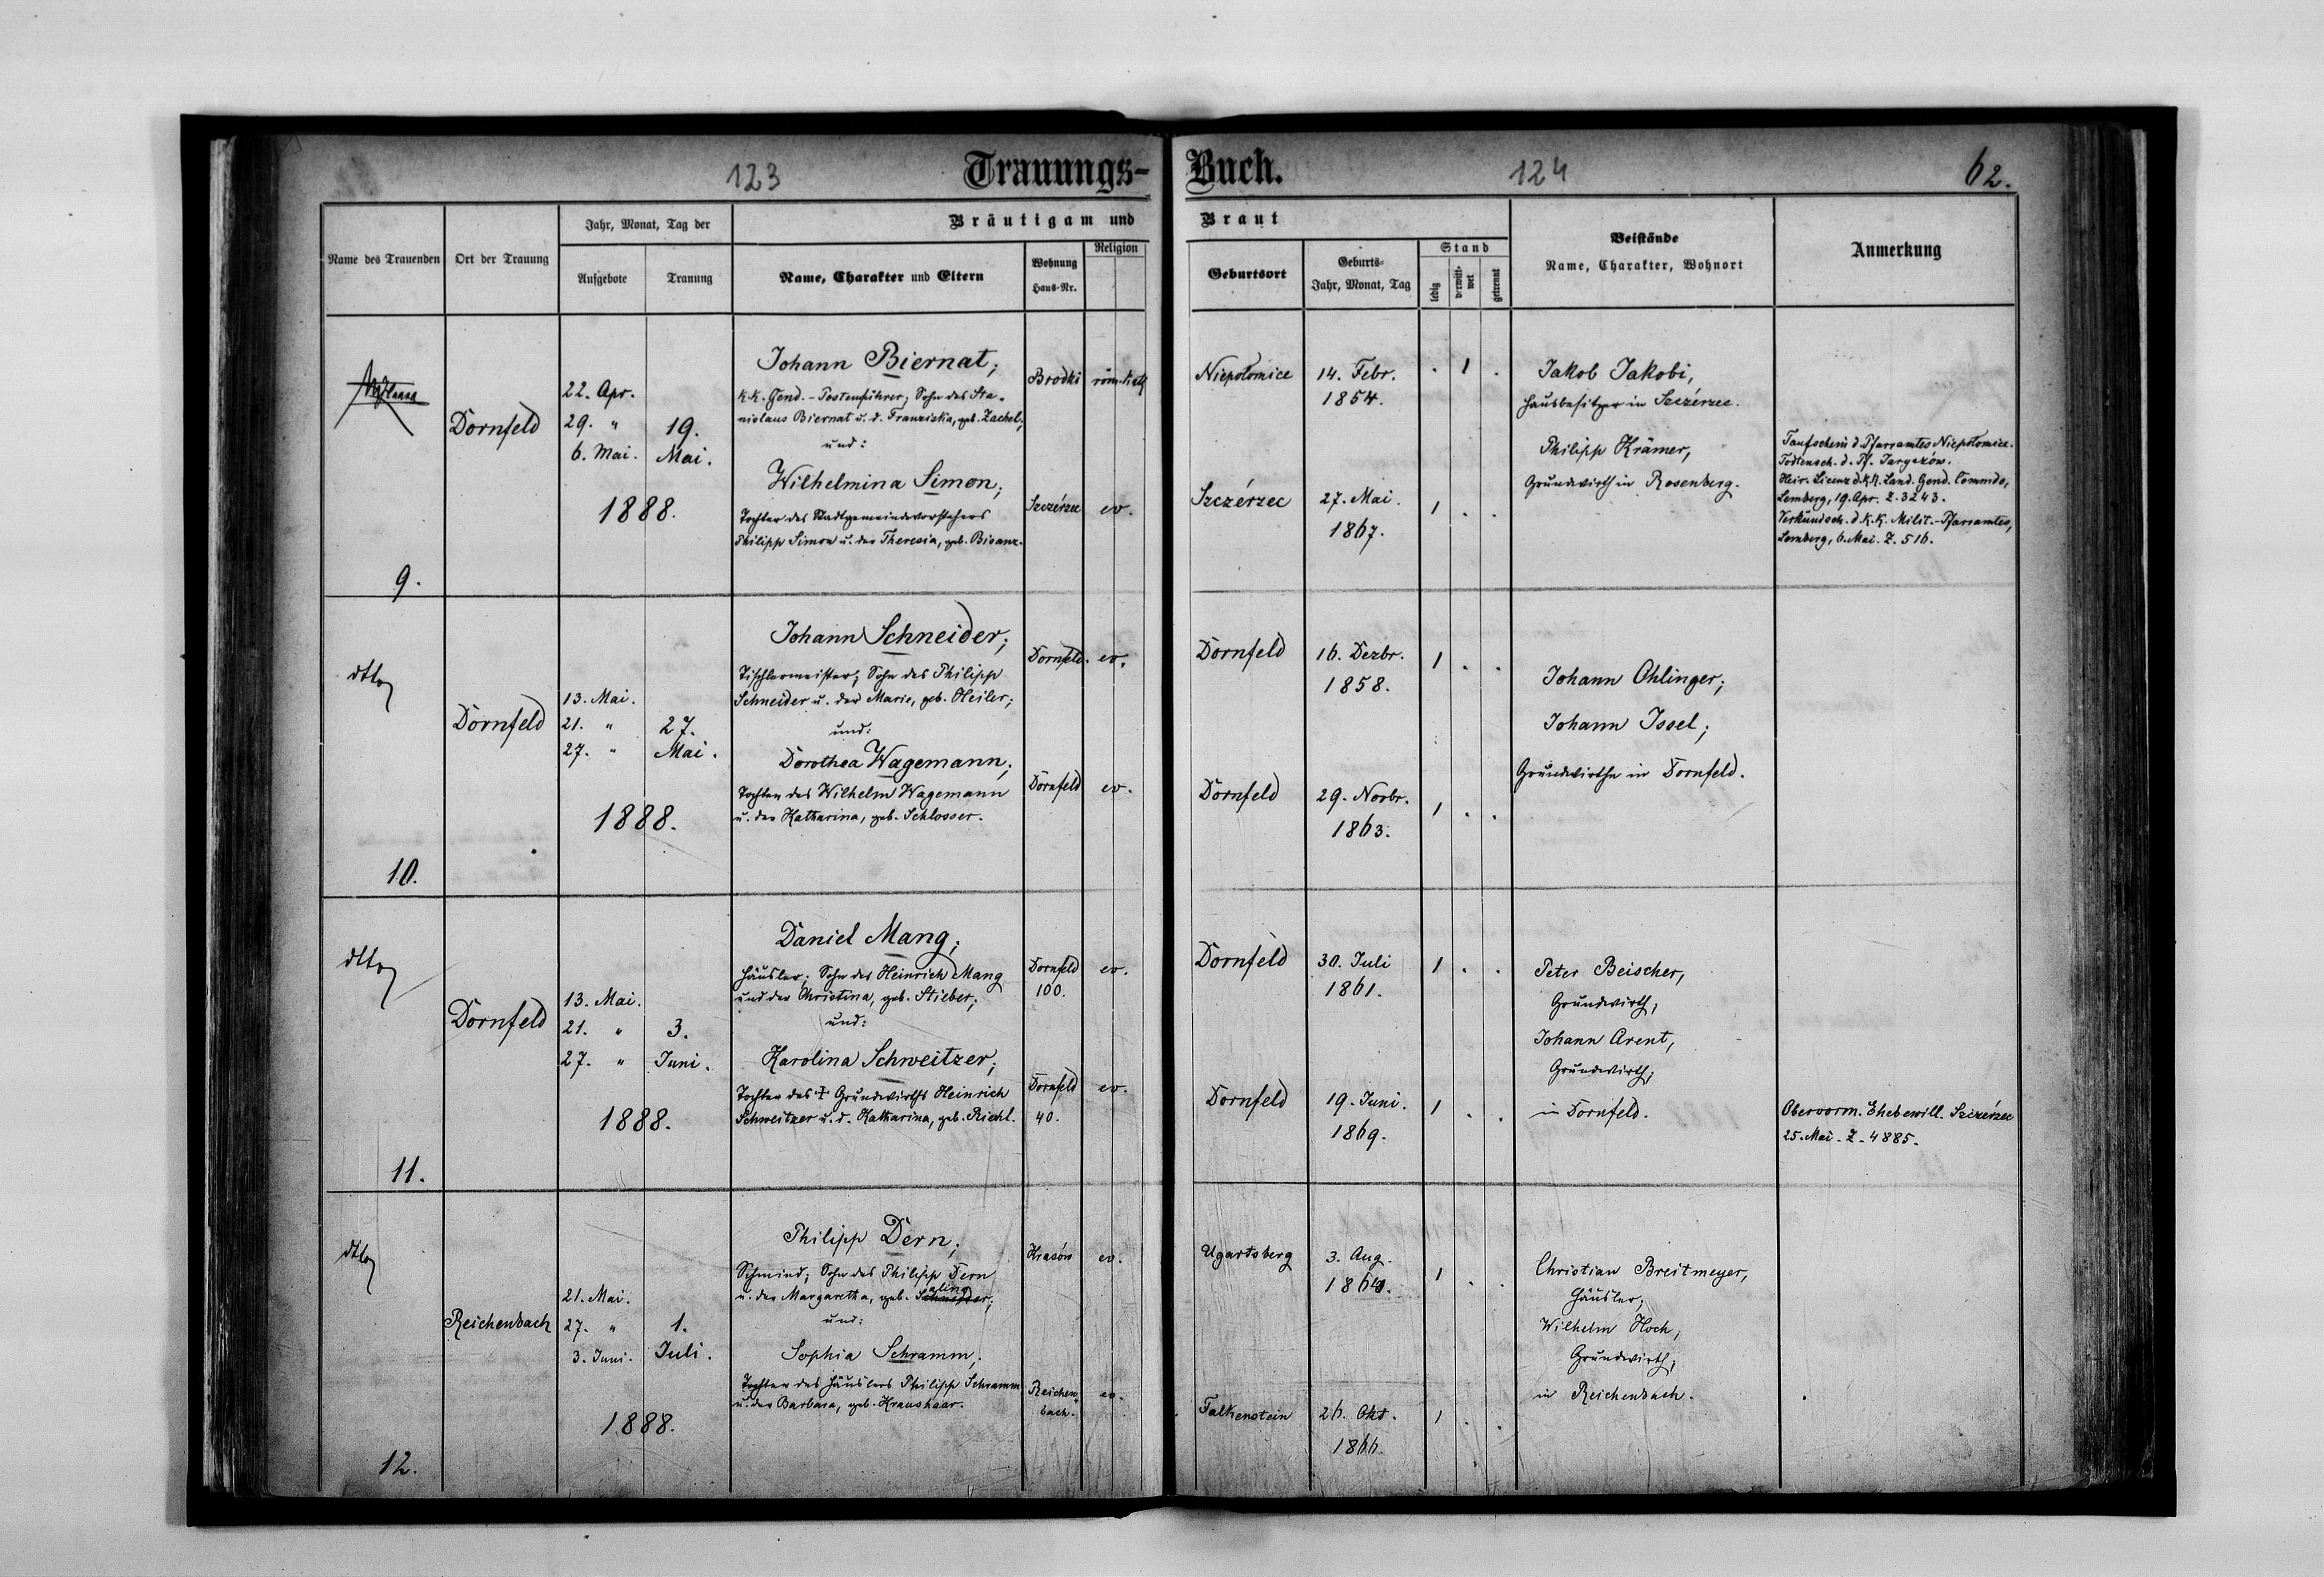 123
Trauungs-
Buch.
124
62.
Name des Trauenden
Ort der Trauung
Jahr, Monat, Tag der
Aufgebote
Trauung
Bräutigam und
Braut
Name, Charakter und Eltern
Wohnung
Haus-Nr.
Religion
Geburtsort
Geburts-
Jahr, Monat, Tag
Stand
ledig
verwitt-
wet
getrennt
Beistände
Name, Charakter, Wohnort
Anmerkung
9.
Dornfeld
22. Apr.
29. "
6. Mai.
19.
Mai.
1888.
Johann Biernat;
k.k. Gend.-Postenführer; Sohn des Sta-
nislaus Biernat u. d. Franziska, geb. Zachel;
und:
Wilhelmina Simon;
Tochter des Stadtgemeindevorstehers
Philipp Simon u. der Theresia, geb. Bisanz.
Brodki
röm. kath
Szczérzec
ev.
Niepołomice
14. Febr.
1854.
. 1 .
Szczérzec
27. Mai.
1867.
1 . .
Jakob Jakobi,
Hausbesitzer in Szczérzec.
Philipp Krämer,
Grundwirth in Rosenberg.
Taufschein d. Pfarramtes Niepołomice.
Todtensch. d. Pf.
Heir. Licenz d. k.k. Land. Gend. Commdo,
Lemberg, 19. Apr. Z. 3243.
Verkündsch. d. k.k. Milit.-Pfarramtes,
Lemberg, 6. Mai. Z. 516.
10.
dtto
Dornfeld
13. Mai.
21. "
27. "
27.
Mai.
1888.
Johann Schneider;
Tischlermeister; Sohn des Philipp
Schneider u. der Marie, geb. Heiler;
und:
Dorothea Wagemann;
Tochter des Wilhelm Wagemann
u. der Katharina, geb. Schlosser.
Dornfeld.
ev.
Dornfeld
ev.
Dornfeld
16. Dezbr.
1858.
1 . .
Dornfeld
29. Novbr.
1863.
1 . .
Johann Ohlinger;
Johann Issel;
Grundwirthe in Dornfeld.
11.
dtto
Dornfeld
13. Mai.
21. "
27. "
3.
Juni.
1888.
Daniel Mang;
Häusler; Sohn des Heinrich Mang
und der Christina, geb. Stieber;
und:
Karolina Schweitzer;
Tochter des † Grundwirths Heinrich
Schweitzer u. d. Katharina, geb. Riehl.
Dornfeld
100.
ev.
Dornfeld
40.
ev.
Dornfeld
30. Juli
1861.
1 . .
Dornfeld
19. Juni.
1869.
1 . .
Peter Beischer,
Grundwirth,
Johann Arent,
Grundwirth;
in Dornfeld.
Obervorm. Ehebewill. Szczérzec
25. Mai. Z. 4885.
12.
dtto
Reichenbach
21. Mai.
27. "
3. Juni.
1.
Juli.
1888.
Philipp Dern;
Schmied; Sohn des Philipp Dern
u. der Margaretha, geb.
und:
Sophia Schramm;
Tochter des Häuslers Philipp Schramm
u. der Barbara, geb. Kraushaar.
Krasów
ev.
Reichen-
bach.
ev.
Ugartsberg
3. Aug.
1864.
1 . .
Falkenstein
26. Okt.
1866.
1 . .
Christian Breitmeyer,
Häusler;
Wilhelm Hoch;
Grundwirth;
in Reichenbach.